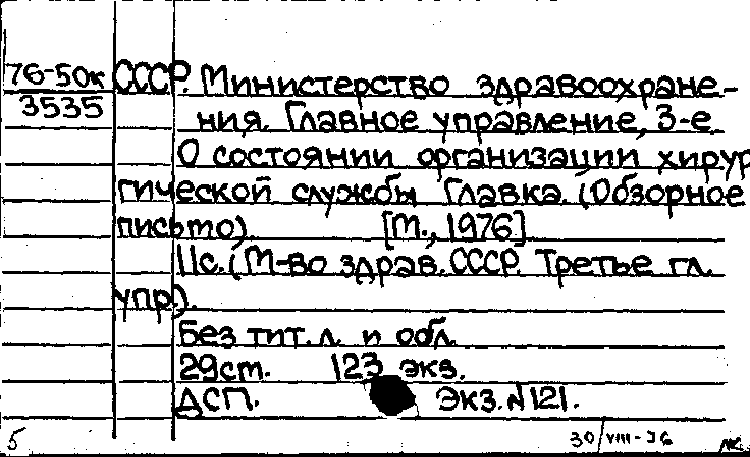 76-50к СССР. Министерство здравоохране-
3535
ния. Главное управление, 3-е.
О состоянии организации хирур
гической службы Главка. (Обзорное
письмо). [М., 1976]
11с. (М-во здрав. СССР. Третье гл.
упр.).
Без тит. л. и обл.
29см. 123 экз.
ДСП. Экз. №121.
5 30/VIII-76